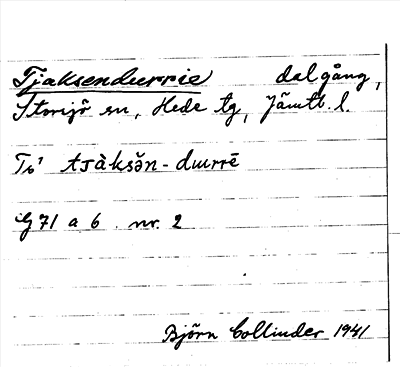 Tjaksendurrie dalgång,
Storsjö sn, Hede tg, Jämtl. l.
To¹ tsàksən-durrē
G 71 a 6 nr. 2
Björn Collinder 1941